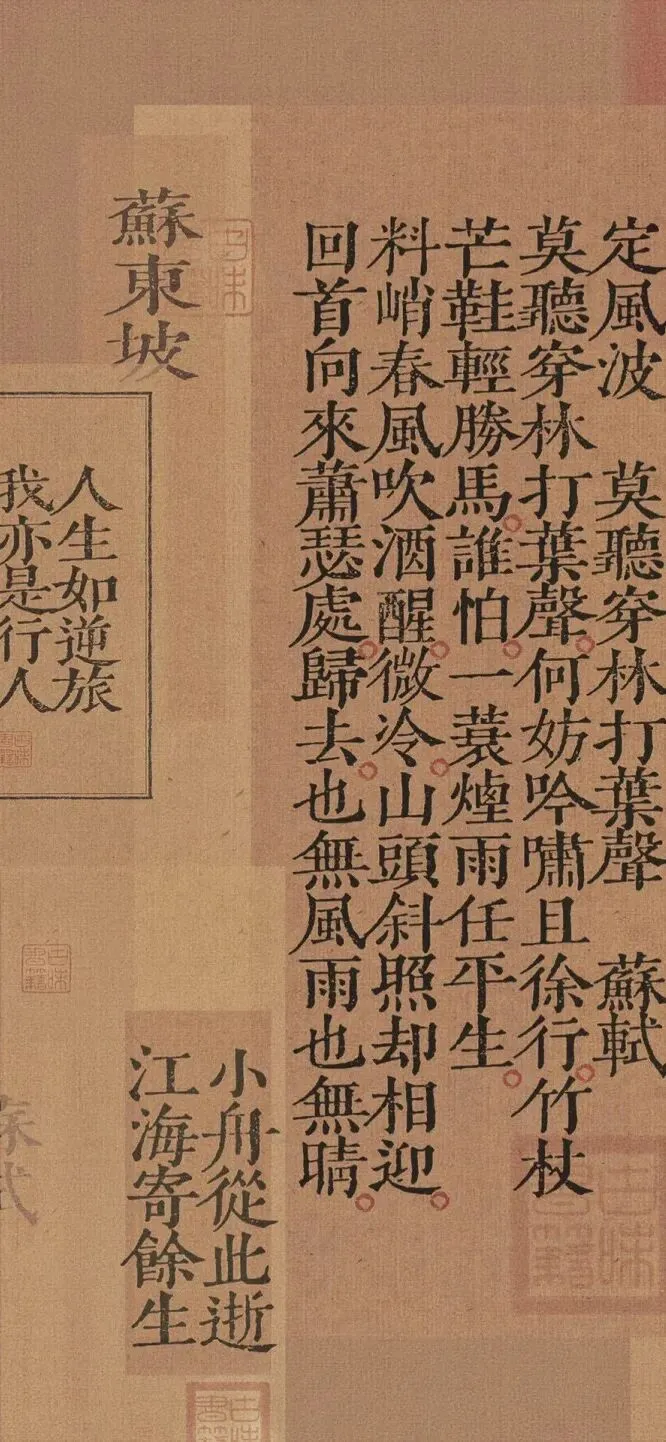 定風波 莫聽穿林打葉聲 蘇軾
莫聽穿林打葉聲何妨吟嘯且徐行竹杖
芒鞋輕勝馬誰怕一蓑煙雨任平生
料峭春風吹酒醒微冷山頭斜照却相迎
回首向來蕭瑟處歸去也無風雨也無晴
蘇東坡
人生如逆旅
我亦是行人
小舟從此逝
江海寄餘生
蘇軾